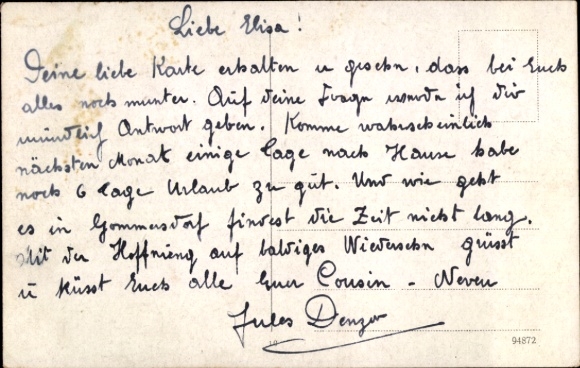 Liebe Elisa!
Deine liebe Karte erhalten u gesehn, dass bei Euch
alles noch munter. Auf deine Fragn werde ich dir
mündlich Antwort geben. Komme wahrscheinlich
nächsten Monat einige Tage nach Hause habe
noch 6 Tage Urlaub zu gut. Und wie geht
es in Gommersdorf findest die Zeit nicht lang.
Mit der Hoffnung auf baldiges Wiedersehn grüsst
u küsst Euch alle Euer Cousin - Neveu
Jules Denzer
94872